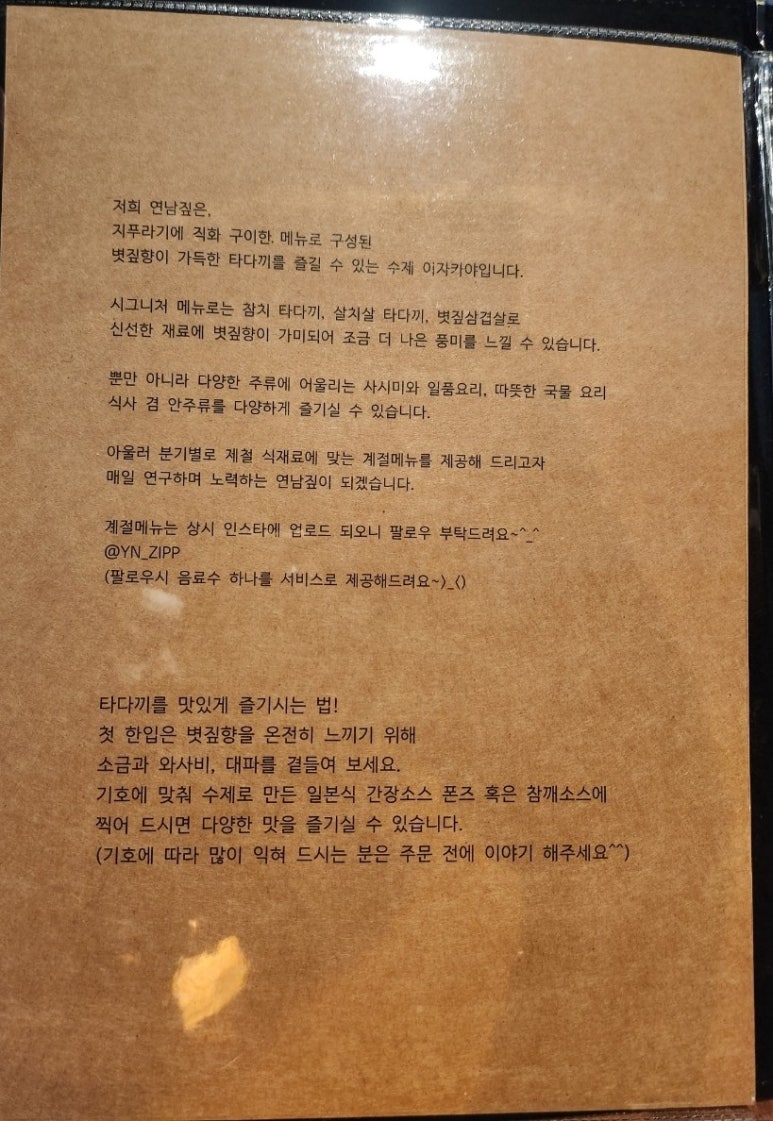 저희 연남짚은,
지푸라기에 직화 구이한 메뉴로 구성된
볏짚향이 가득한 타다끼를 즐길 수 있는 수제 이자카야입니다.
시그니처 메뉴로는 참치 타다끼, 살치살 타다끼, 볏짚삼겹살로
신선한 재료에 볏짚향이 가미되어 조금 더 나은 풍미를 느낄 수 있습니다.
뿐만 아니라 다양한 주류에 어울리는 사시미와 일품요리, 따뜻한 국물 요리
식사 겸 안주류를 다양하게 즐기실 수 있습니다.
아울러 분기별로 제철 식재료에 맞는 계절메뉴를 제공해 드리고자
매일 연구하며 노력하는 연남짚이 되겠습니다.
계절메뉴는 상시 인스타에 업로드 되오니 팔로우 부탁드려요~^_^
@YN_ZIPP
(팔로우시 음료수 하나를 서비스로 제공해드려요~)_()
타다끼를 맛있게 즐기시는 법!
첫 한입은 볏짚향을 온전히 느끼기 위해
소금과 와사비, 대파를 곁들여 보세요.
기호에 맞춰 수제로 만든 일본식 간장소스 폰즈 혹은 참깨소스에
찍어 드시면 다양한 맛을 즐기실 수 있습니다.
(기호에 따라 많이 익혀 드시는 분은 주문 전에 이야기 해주세요^^)